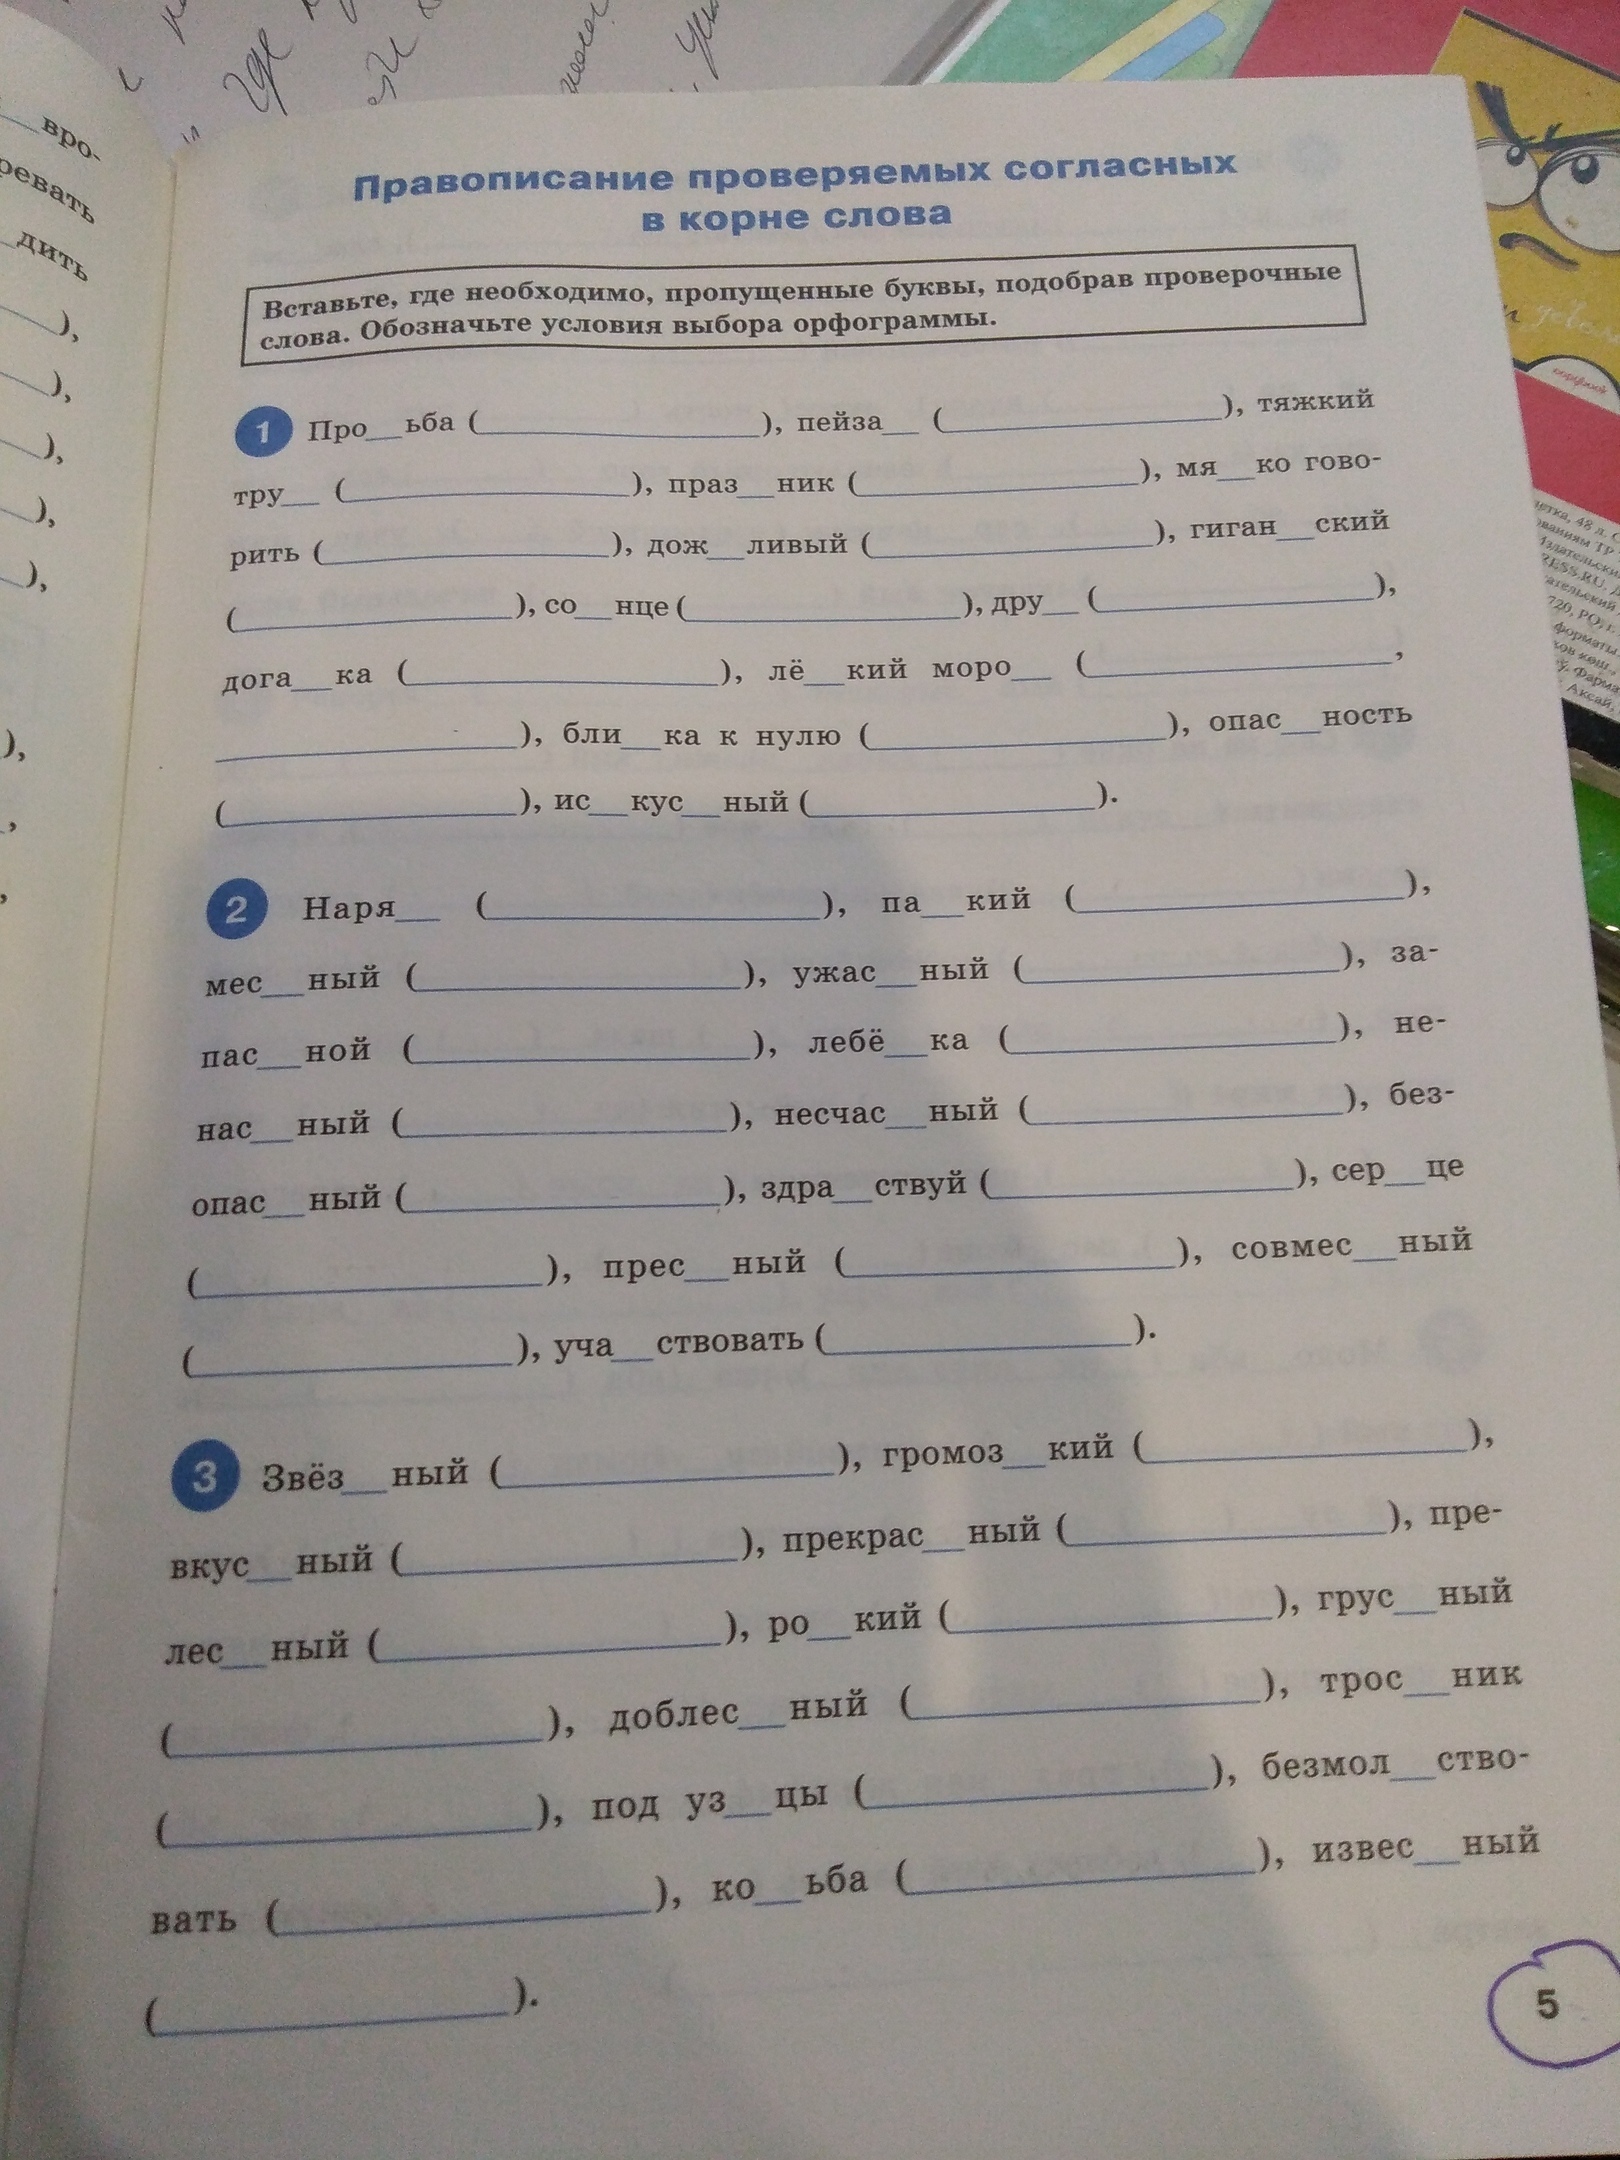 где
вро-
ревать
дить
),
),
),
),
),
),
Правописание проверяемых согласных
в корне слова
Вставьте, где необходимо, пропущенные буквы, подобрав проверочные
слова. Обозначьте условия выбора орфограммы.
1 Про__ьба (____________), пейза__ (____________), тяжкий
тру__ (____________), праз__ник (____________), мя__ко гово-
рить (____________), дож__ливый (____________), гиган__ский
(____________), со__нце (____________), дру__ (____________),
дога__ка (____________), лё__кий моро__ (____________,
____________), бли__ка к нулю (____________), опас__ность
(____________), ис__кус__ный (____________).
2 Наря__ (____________), па__кий (____________),
мес__ный (____________), ужас__ный (____________), за-
пас__ной (____________), лебё__ка (____________), не-
нас__ный (____________), несчас__ный (____________), без-
опас__ный (____________), здра__ствуй (____________), сер__це
(____________), прес__ный (____________), совмес__ный
(____________), уча__ствовать (____________).
3 Звёз__ный (____________), громоз__кий (____________),
вкус__ный (____________), прекрас__ный (____________), пре-
лес__ный (____________), ро__кий (____________), грус__ный
(____________), доблес__ный (____________), трос__ник
(____________), под уз__цы (____________), безмол__ство-
вать (____________), ко__ьба (____________), извес__ный
(____________).
5